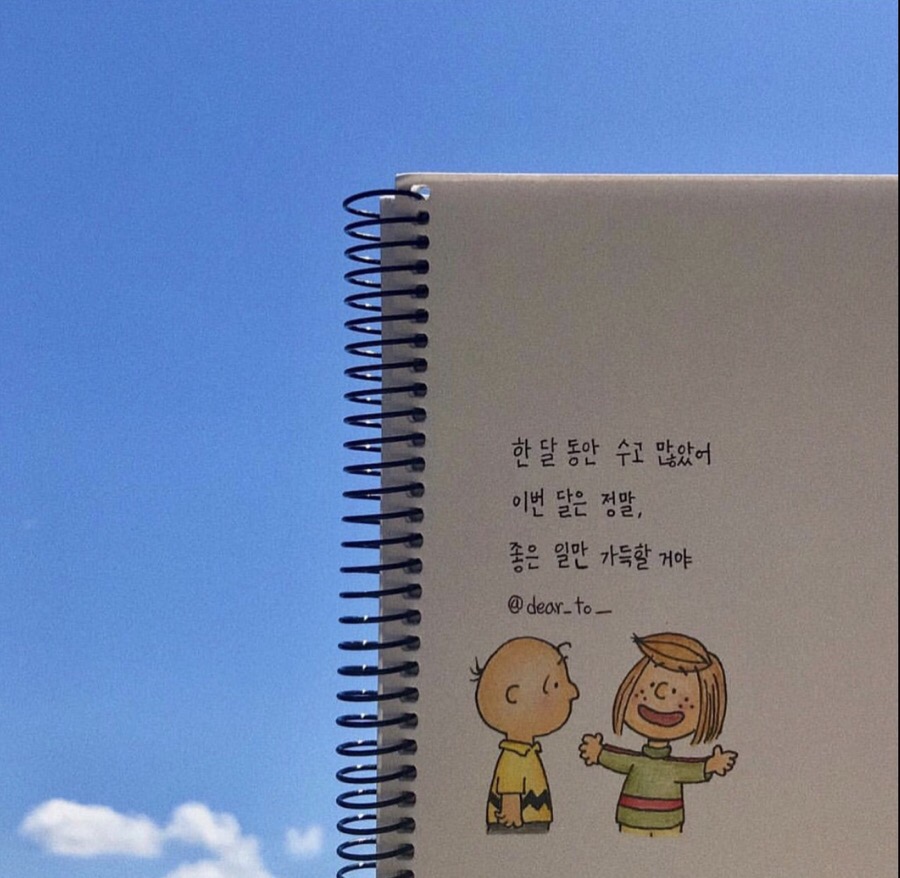 한 달 동안 수고 많았어
이번 달은 정말,
좋은 일만 가득할 거야
@dear_to_